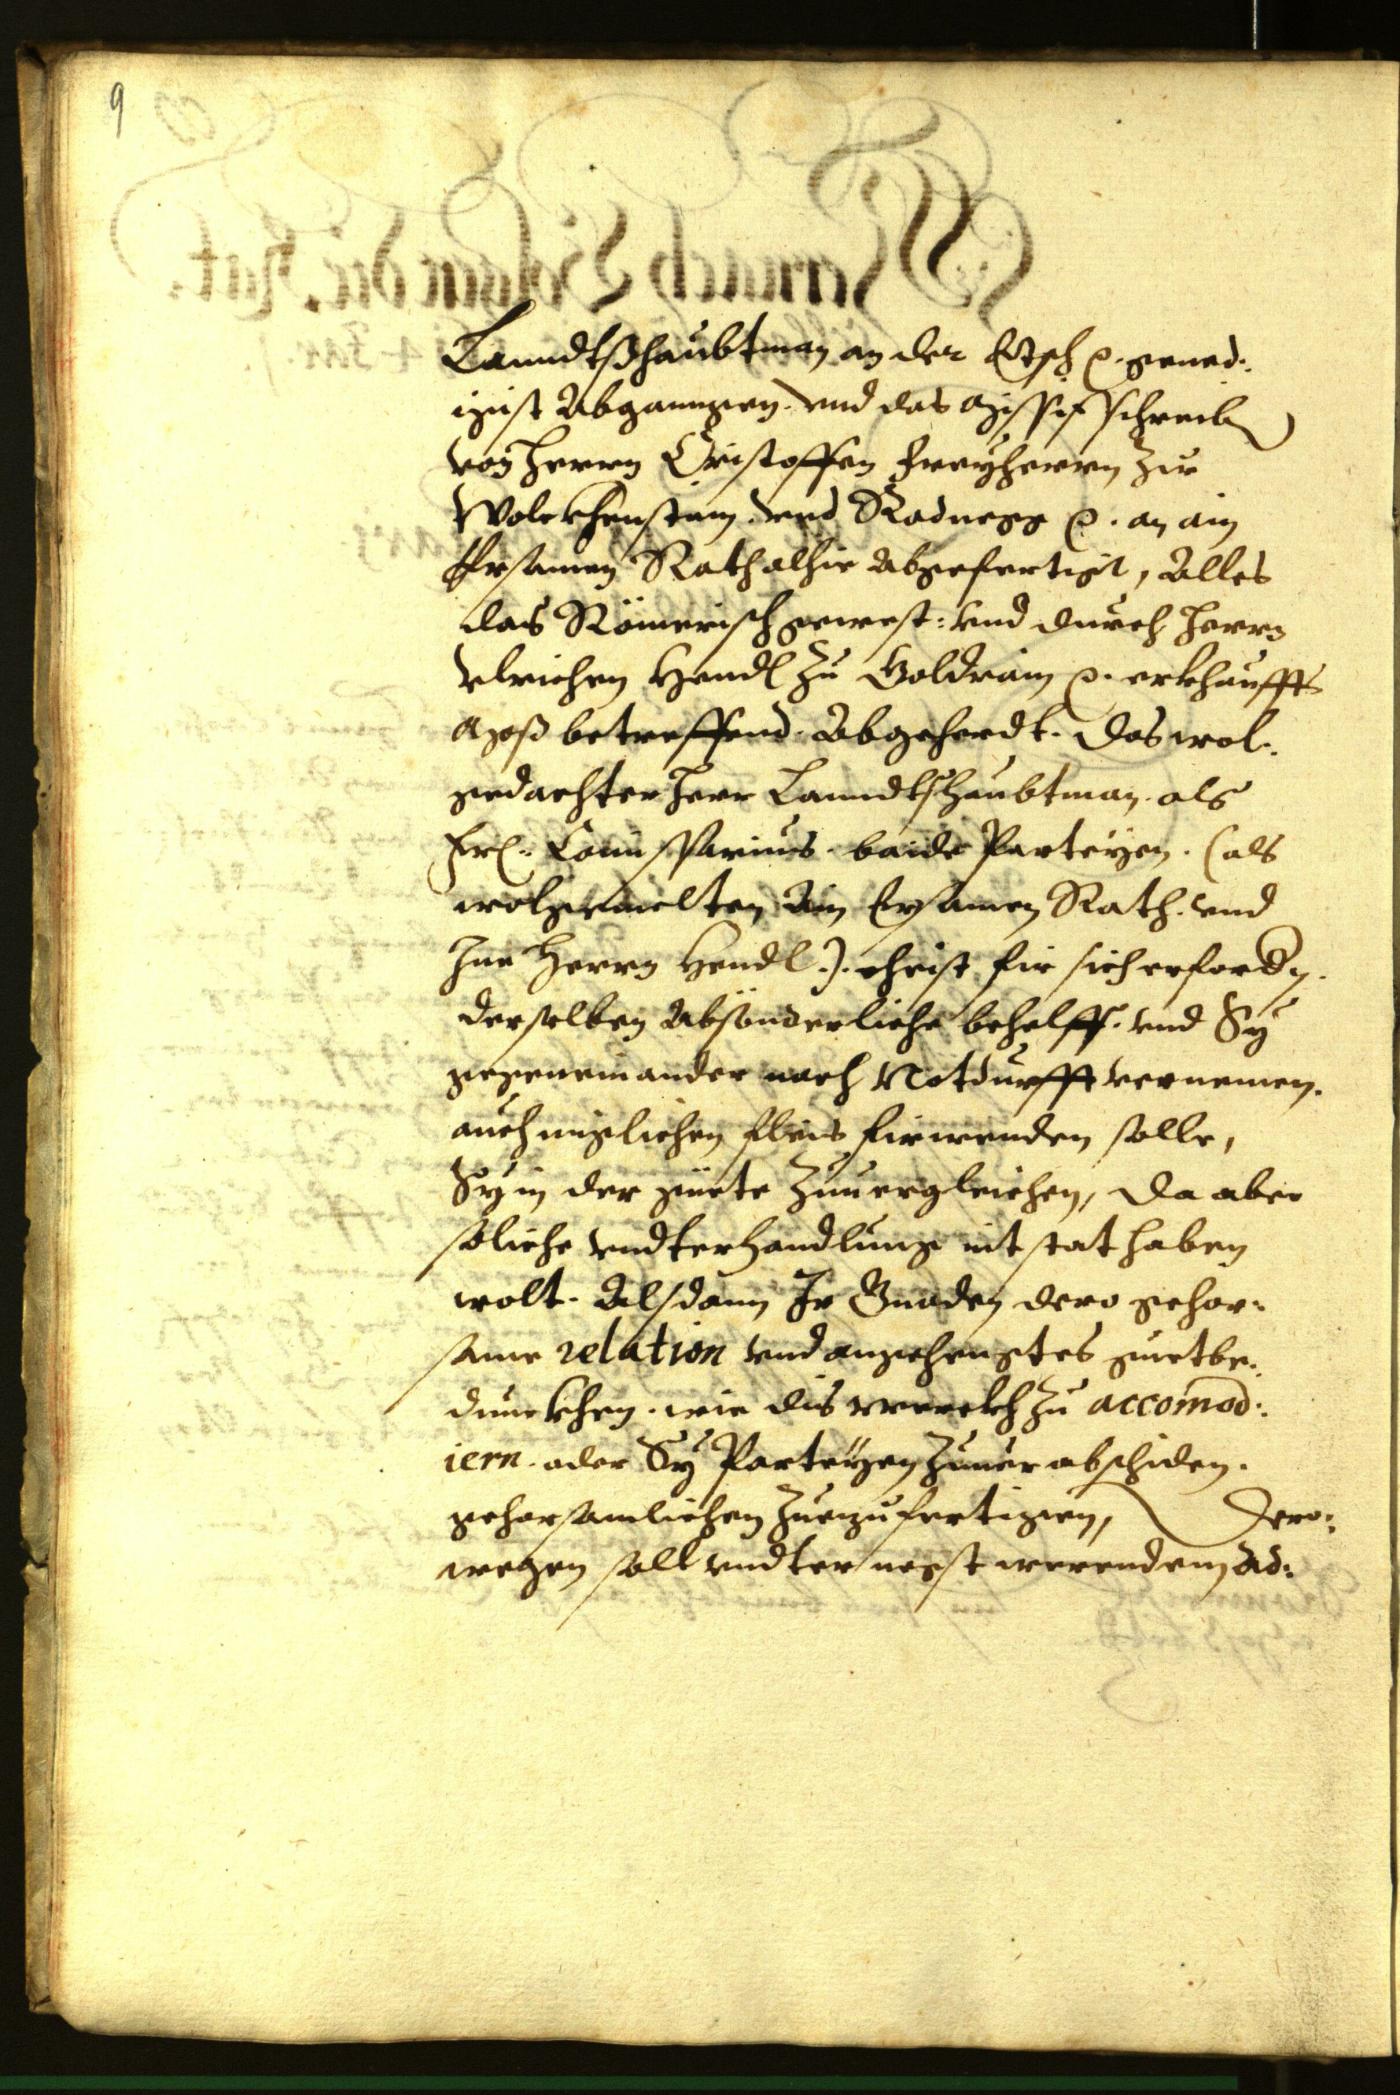 9
Lanndtßhaubtman an der Etsch etc. gened:
igist abganngen. vnd das Missif schreiben
von Herrn Cristoffen Freyherrn zu
Wolckhenstain vnd Rodnegg etc. an ain
Ersamen Rath alhie abgefertigt, Alles
das Römerisch gewest: vnd durch Herrn
Vlrichen Hendl zu Goldrain etc. erkhaufft
Moß betreffend. Abgehördt. das wol:
gedachter Herr Lanndtshaubtman. als
Frl: Comissarius. baide Parteyen. (als
wolgemelten Ain Ersamen Rath. vnd
Ine Herrn Hendl.). ehist für sich erfordern.
derselben absönderliche behelff. vnd Sy
gegeneinander nach Notdurfft vernemen.
auch müglichen fleis fürwenden solle,
Sy in der güete zuuergleichen, da aber
soliche vndterhandlung nit stat haben
wolt. Alsdann Ir Gnaden dero gehor:
same relation vnd angehengtes guetbe:
dunckhen. wie dis werckh zu accomod:
iern. oder Sy Parteyen zuuerabschiden.
gehorsamlichen zuezufertigen, Dero:
wegen soll vndter negst werendem Ad: